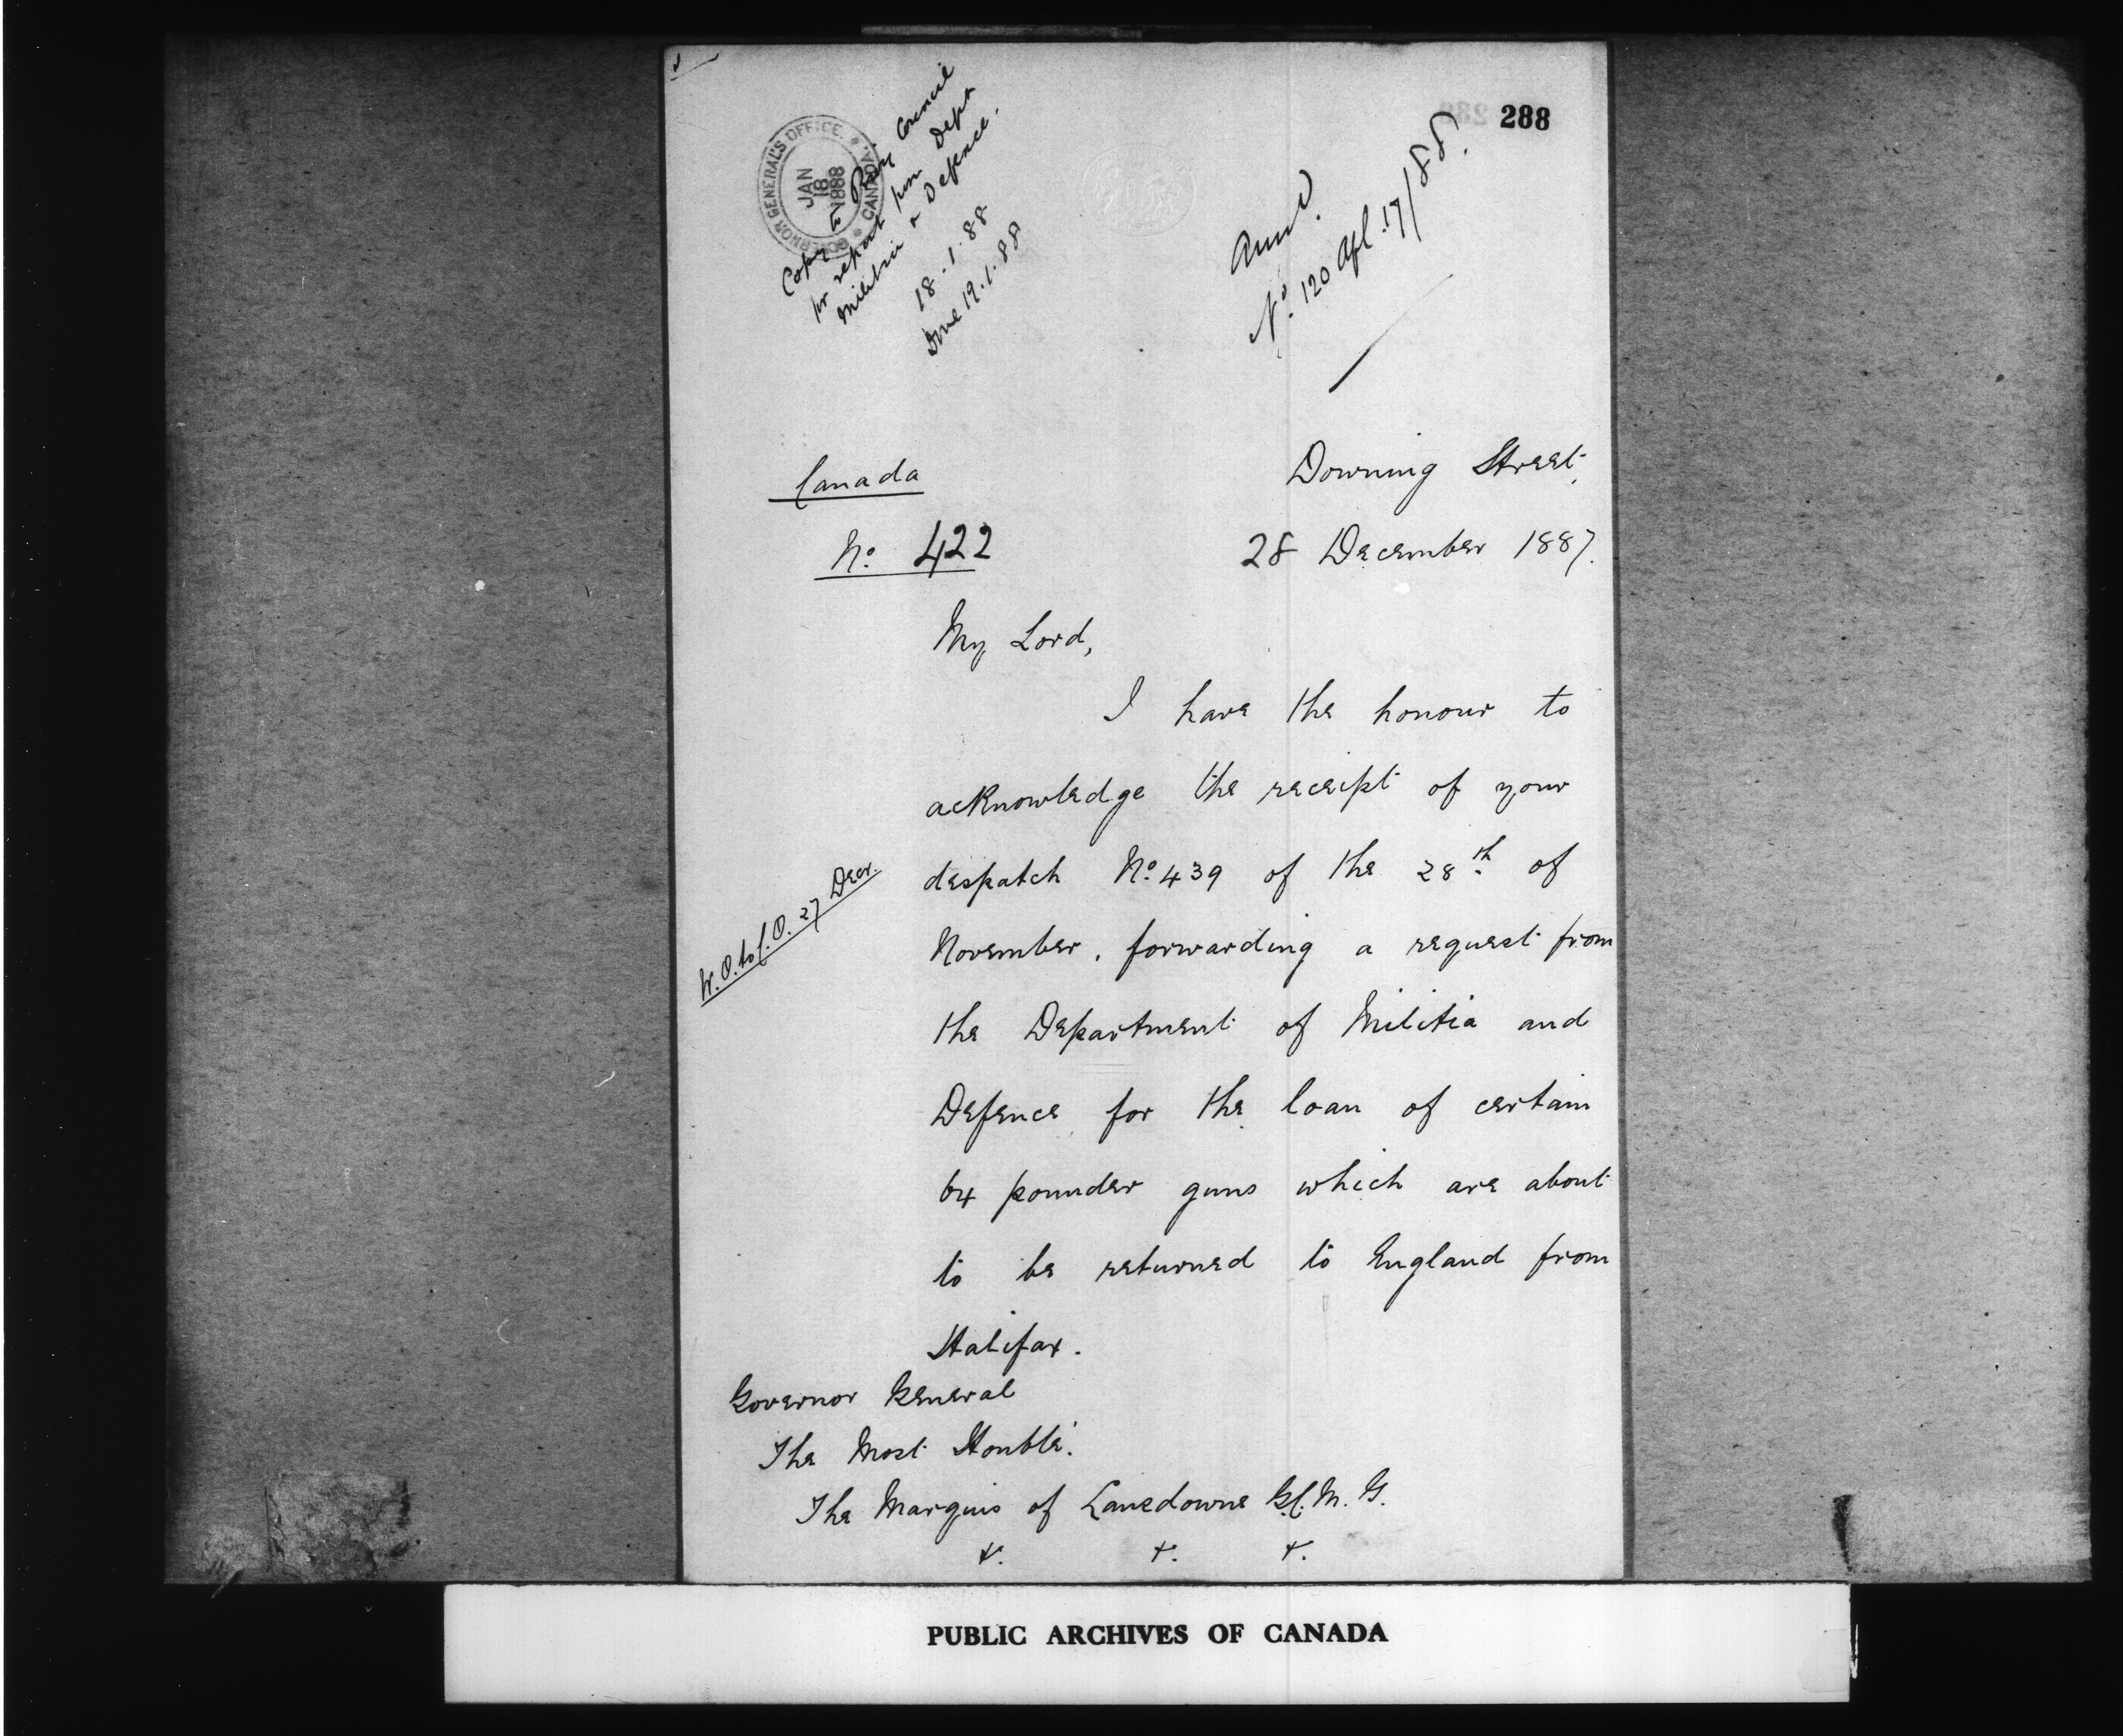 288
GOVERNOR GENERAL'S OFFICE.
CANADA.
JAN
18
1888
Copy to Privy Council
for report from Dept
Militia & Defence.
18.1.88
Done 19.1.88
Ansd.
No. 120 Apl. 17/88.
Canada
No. 422
Downing Street,
28 December 1887.
My Lord,
I have the honour to
acknowledge the receipt of your
despatch No. 439 of the 28th of
W.O. to C.O. 27 Decr.
November, forwarding a request from
the Department of Militia and
Defence for the loan of certain
64 pounder guns which are about
to be returned to England from
Halifax.
Governor General
The Most Honble.
The Marquis of Lansdowne G.C.M.G.
&. &. &.
PUBLIC ARCHIVES OF CANADA